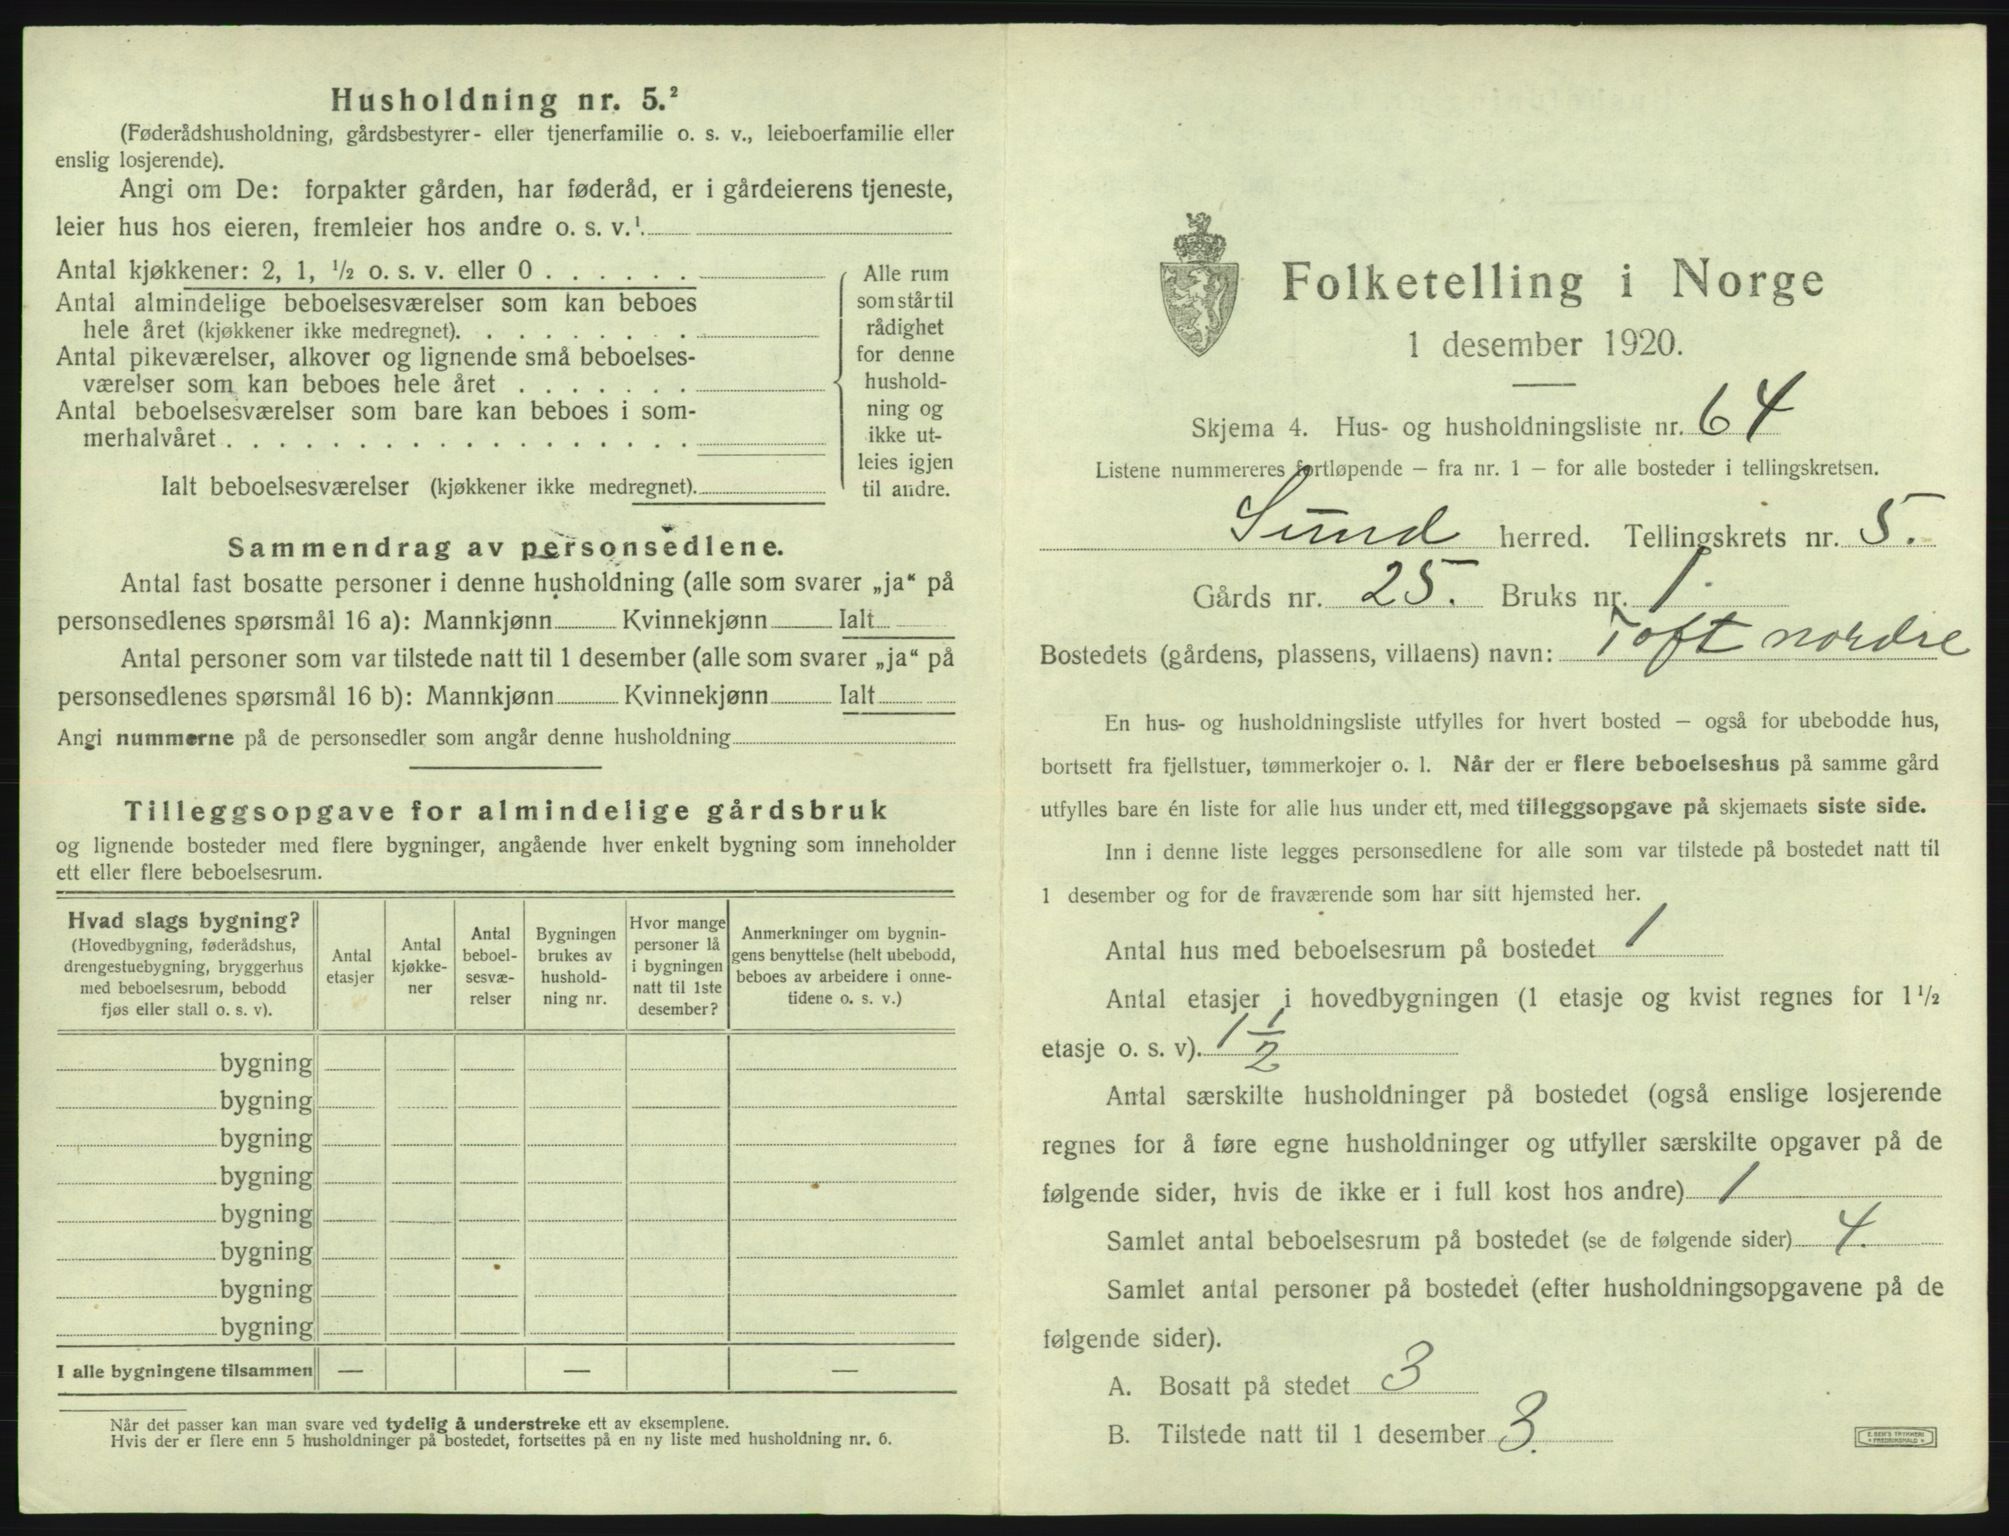 Husholdning nr. 5.²
(Føderådshusholdning, gårdsbestyrer- eller tjenerfamilie o. s. v., leieboerfamilie eller
enslig losjerende).
Angi om De: forpakter gården, har føderåd, er i gårdeierens tjeneste,
leier hus hos eieren, fremleier hos andre o. s. v.¹
Antal kjøkkener: 2, 1, ½ o. s. v. eller 0 . . . . . .
Antal almindelige beboelsesværelser som kan beboes
hele året (kjøkkener ikke medregnet). . . . . . . . .
Antal pikeværelser, alkover og lignende små beboelses-
værelser som kan beboes hele året . . . . . . .
Antal beboelsesværelser som bare kan beboes i som-
merhalvåret . . . . . . . . . . . . . . . . . .
Ialt beboelsesværelser (kjøkkener ikke medregnet).
Alle rum
som står til
rådighet
for denne
hushold-
ning og
ikke ut-
leies igjen
til andre.
Sammendrag av personsedlene.
Antal fast bosatte personer i denne husholdning (alle som svarer „ja“ på
personsedlenes spørsmål 16 a): Mannkjønn Kvinnekjønn Ialt
Antal personer som var tilstede natt til 1 desember (alle som svarer „ja“ på
personsedlenes spørsmål 16 b): Mannkjønn Kvinnekjønn Ialt
Angi nummerne på de personsedler som angår denne husholdning
Tilleggsopgave for almindelige gårdsbruk
og lignende bosteder med flere bygninger, angående hver enkelt bygning som inneholder
ett eller flere beboelsesrum.
Hvad slags bygning?
(Hovedbygning, føderådshus,
drengestuebygning, bryggerhus
med beboelsesrum, bebodd
fjøs eller stall o. s. v).
Antal
etasjer
Antal
kjøkke-
ner
Antal
beboel-
sesvæ-
relser
Bygningen
brukes av
hushold-
ning nr.
Hvor mange
personer lå
i bygningen
natt til 1ste
desember?
Anmerkninger om bygnin-
gens benyttelse (helt ubebodd,
beboes av arbeidere i onne-
tidene o. s. v.)
bygning
bygning
bygning
bygning
bygning
bygning
bygning
bygning
I alle bygningene tilsammen — — —
Når det passer kan man svare ved tydelig å understreke ett av eksemplene.
Hvis der er flere enn 5 husholdninger på bostedet, fortsettes på en ny liste med husholdning nr. 6.
Folketelling i Norge
1 desember 1920.
Skjema 4. Hus- og husholdningsliste nr. 64
Listene nummereres fortløpende — fra nr. 1 — for alle bosteder i tellingskretsen.
Sund herred. Tellingskrets nr. 5.
Gårds nr. 25. Bruks nr. 1.
Bostedets (gårdens, plassens, villaens) navn: Toft nordre
En hus- og husholdningsliste utfylles for hvert bosted — også for ubebodde hus,
bortsett fra fjellstuer, tømmerkojer o. l. Når der er flere beboelseshus på samme gård
utfylles bare én liste for alle hus under ett, med tilleggsopgave på skjemaets siste side.
Inn i denne liste legges personsedlene for alle som var tilstede på bostedet natt til
1 desember og for de fraværende som har sitt hjemsted her.
Antal hus med beboelsesrum på bostedet 1
Antal etasjer i hovedbygningen (1 etasje og kvist regnes for 1½
etasje o. s. v). 1 1/2
Antal særskilte husholdninger på bostedet (også enslige losjerende
regnes for å føre egne husholdninger og utfyller særskilte opgaver på de
følgende sider, hvis de ikke er i full kost hos andre) 1
Samlet antal beboelsesrum på bostedet (se de følgende sider) 4.
Samlet antal personer på bostedet (efter husholdningsopgavene på de
følgende sider).
A. Bosatt på stedet 3
B. Tilstede natt til 1 desember 3.
E. SEM'S TRYKKERI
FREDRIKSHALD